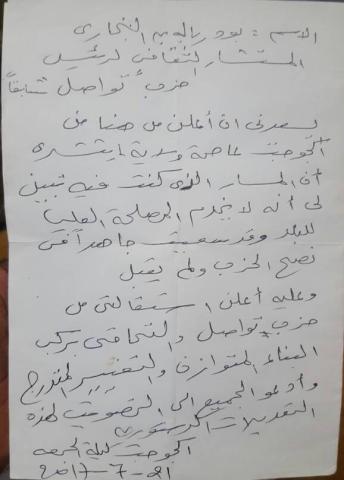 الاسم : بودربالة بن البخاري
المستشار الثقافي لرئيس
حزب تواصل سابقاً
يسعدني ان أعلن من هنا من
الحوض عاصمة
أن المسار الذي كنت فيه تبين
لى أنه لا يخدم المصلحة العليا
للبلد وقد سعيت جاهدا في
نصح الحزب ولم يقبل
وعليه أعلن استقالتي من
حزب تواصل والتحاقي بركب
البناء المتوازن والتغيير المتدرج
وأدعو الجميع الى التصويت لهذه
التعديلات الدستورية
ليلة الجمعة
21-7-2017